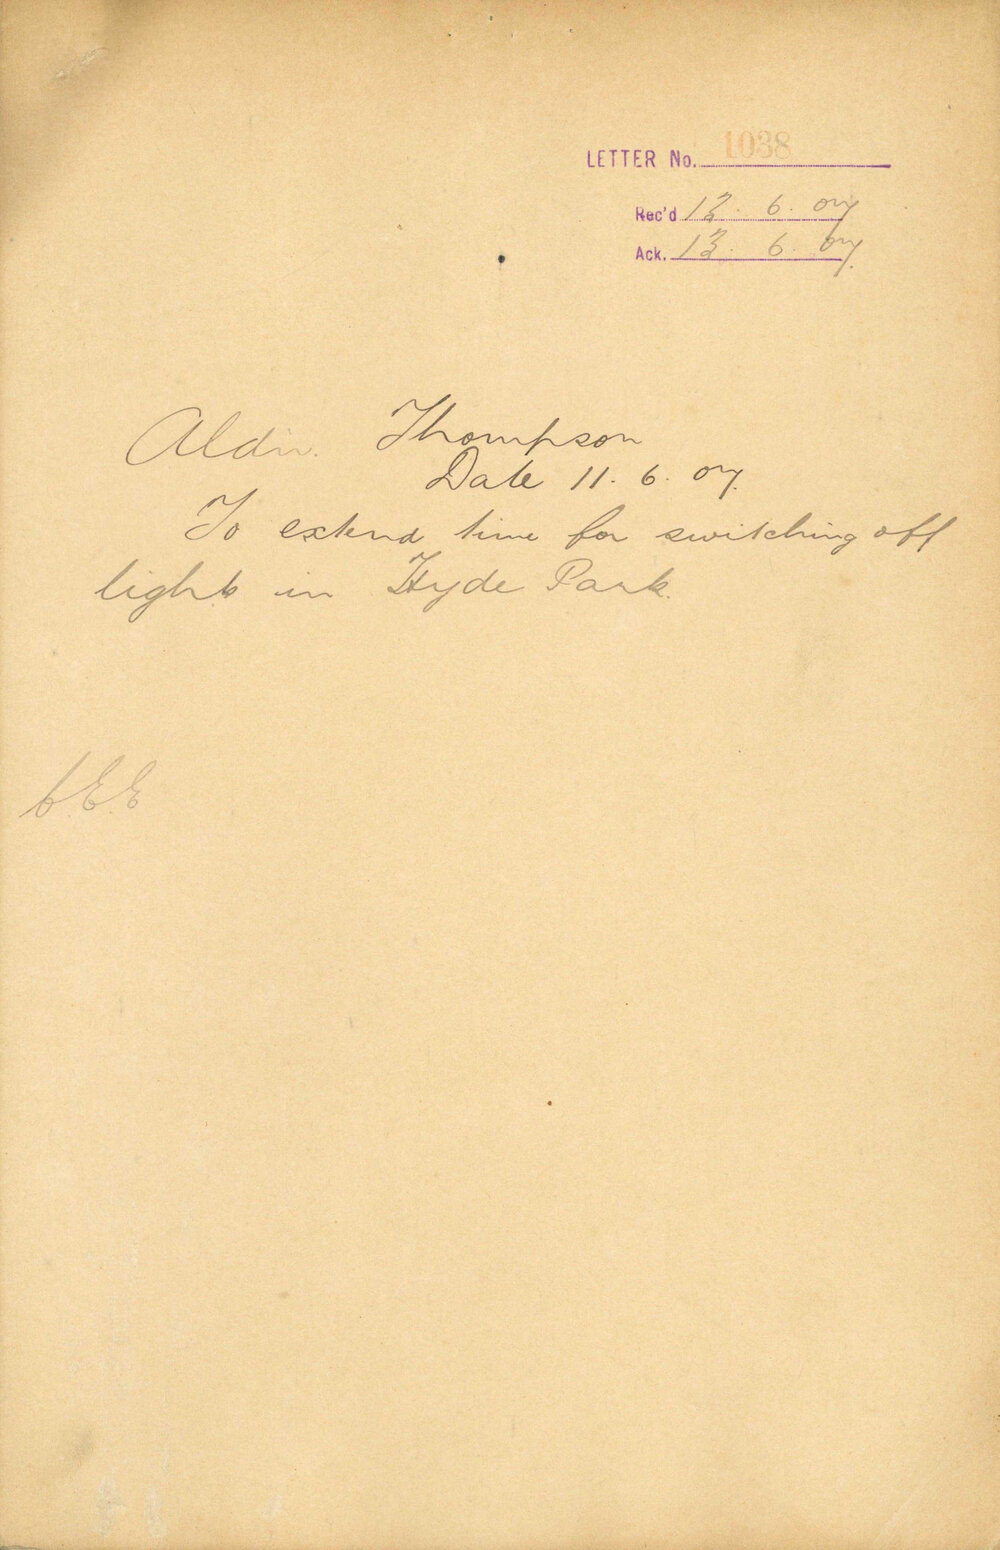 LETTER No. 1038
Rec'd 12. 6. 07
Ack. 13. 6. 07.
Aldn. Thompson
Date 11. 6. 07.
To extend time for switching off
lights in Hyde Park.